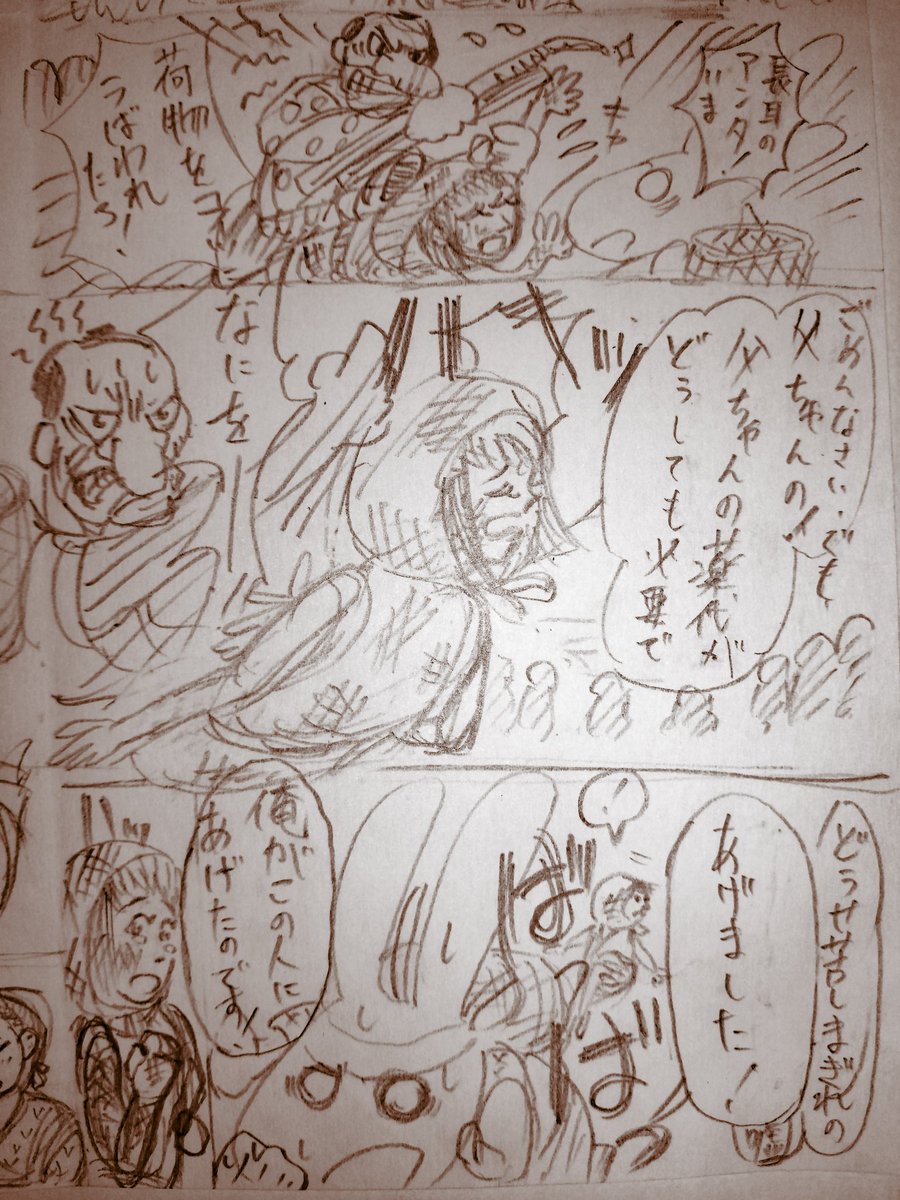 長耳の
アンタ!
いま
荷物を
うばわれ
たろ!
ごめんなさい・でも
父ちゃんの・・
父ちゃんの薬代が
どうしても必要で
なにをー
どうせ苦しまぎれの
嘘
あげました!
ばば
!
俺がこの人に
あげたのです!